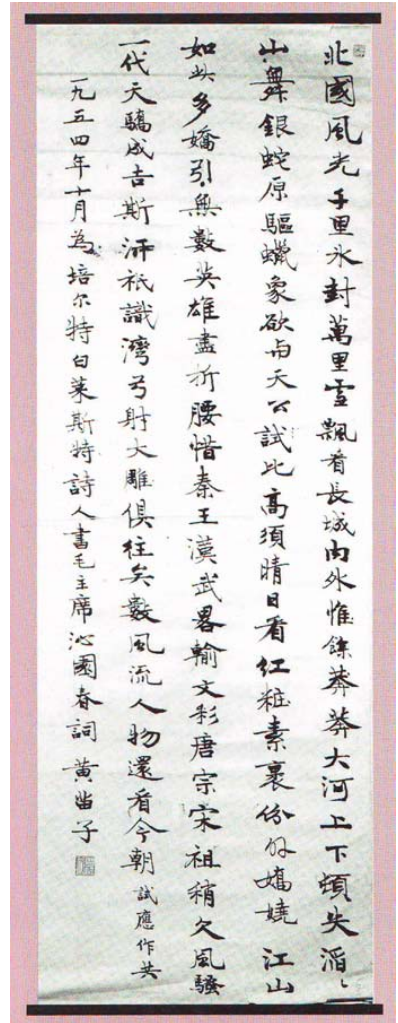 北國風光千里氷封萬里雪飄看長城內外惟餘莽莽大河上下頓失滔〻
山舞銀蛇原驅蠟象欲与天公試比高須晴日看紅粧素裹份外嬌嬈江山
如此多嬌引無數英雄盡折腰惜秦王漢武畧輸文彩唐宗宋祖稍欠風騷
一代天驕成吉斯汗祇識灣弓射大雕俱往矣數風流人物還看今朝 試應作共
一九五四年十月為培尔特白萊斯特詩人書毛主席沁園春詞 黃苗子